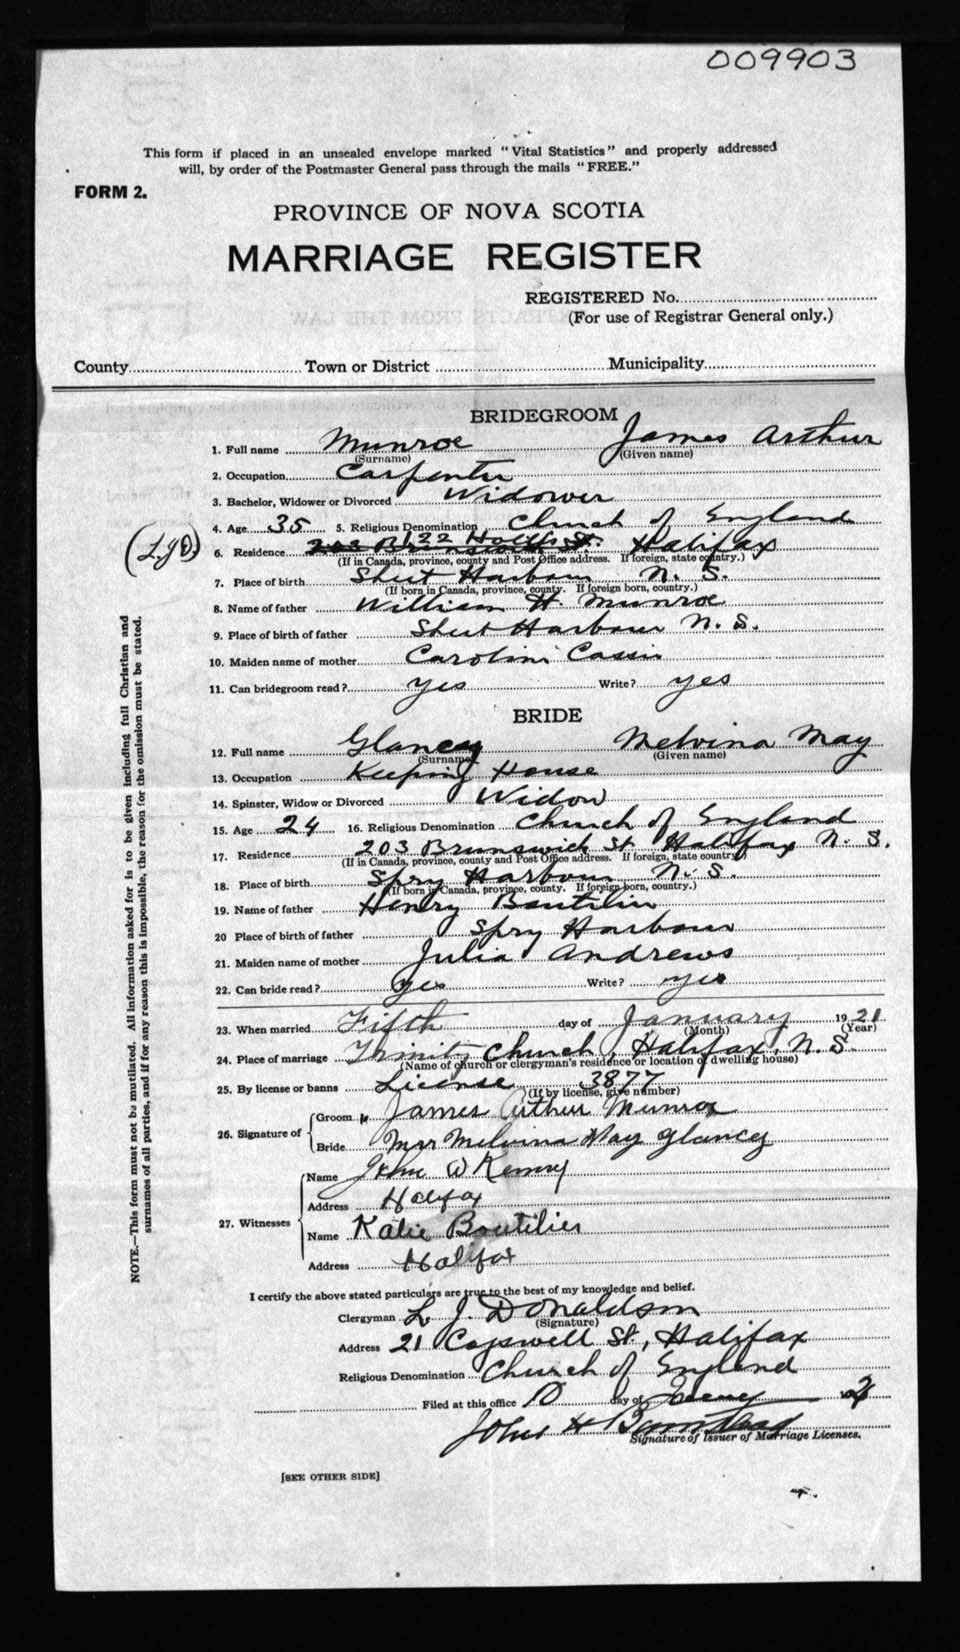 009903
This form if placed in an unsealed envelope marked "Vital Statistics" and properly addressed
will, by order of the Postmaster General pass through the mails "FREE."
FORM 2.
PROVINCE OF NOVA SCOTIA
MARRIAGE REGISTER
REGISTERED No.
(For use of Registrar General only.)
County Town or District Municipality
BRIDEGROOM
1. Full name Munroe James Arthur
(Surname) (Given name)
2. Occupation Carpenter
3. Bachelor, Widower or Divorced Widower
4. Age 35 5. Religious Denomination Church of England
122 Hollis
(L.J.D.) 6. Residence 203 Brunswick St. Halifax
(If in Canada, province, county and Post Office address. If foreign, state country.)
7. Place of birth Sheet Harbour N. S.
(If born in Canada, province, county. If foreign born, country.)
8. Name of father William H. Munroe
9. Place of birth of father Sheet Harbour N. S.
10. Maiden name of mother Caroline
11. Can bridegroom read? yes Write? yes
BRIDE
12. Full name Glancey Melvina May
(Surname) (Given name)
13. Occupation Keeping House
14. Spinster, Widow or Divorced Widow
15. Age 24 16. Religious Denomination Church of England
17. Residence 203 Brunswick St. Halifax N. S.
(If in Canada, province, county and Post Office address. If foreign, state country)
18. Place of birth Spry Harbour N. S.
(If born in Canada, province, county. If foreign born, country.)
19. Name of father Henry Boutilier
20 Place of birth of father Spry Harbour
21. Maiden name of mother Julia Andrews
22. Can bride read? Yes Write? yes
23. When married Fifth day of January 1921
(Month) (Year)
24. Place of marriage Trinity Church, Halifax, N. S.
(Name of church or clergyman's residence or location of dwelling house)
25. By license or banns License 3877
(If by license, give number)
26. Signature of
Groom James Arthur Munroe
Bride Mrs Melvina May Glancey
27. Witnesses
Name John W Kenny
Address Halifax
Name Katie Boutilier
Address Halifax
I certify the above stated particulars are true to the best of my knowledge and belief.
Clergyman L. J. Donaldson
(Signature)
Address 21 Cogswell St., Halifax
Religious Denomination Church of England
Filed at this office 10 day of 21
John H Barnstead
Signature of Issuer of Marriage Licenses.
[SEE OTHER SIDE]
NOTE.—This form must not be mutilated. All information asked for is to be given including full Christian and
surnames of all parties, and if for any reason this is impossible, the reason for the omission must be stated.